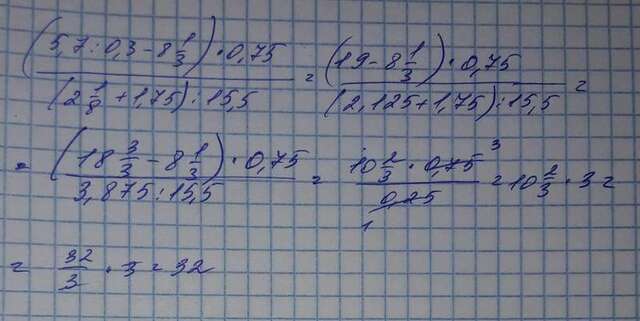 ((5,7 : 0,3 - 8 1/3) · 0,75) / ((2 1/8 + 1,75) : 15,5) = ((19 - 8 1/3) · 0,75) / ((2,125 + 1,75) : 15,5) =
= ((18 3/3 - 8 1/3) · 0,75) / (3,875 : 15,5) = (10 2/3 · 0,75 3) / (0,25 1) = 10 2/3 · 3 =
= 32/3 · 3 = 32